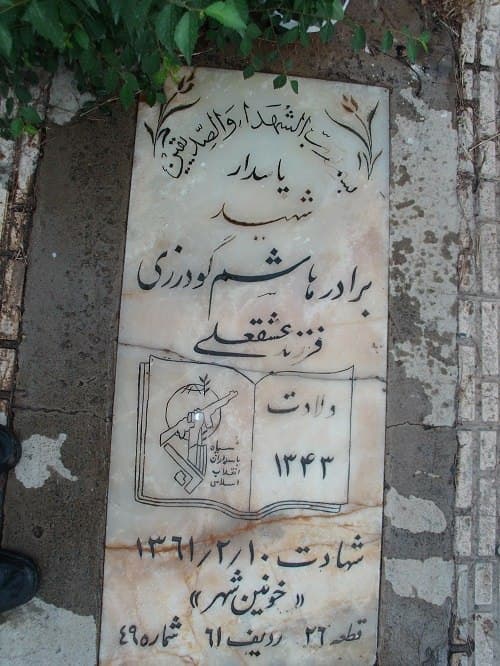 بسم رب الشهداء والصدیقین
پاسدار
شهید
برادر هاشم گودرزی
فرزند عشقعلی
سپاه
پاسداران
انقلاب
اسلامی
ولادت
۱۳۴۳
شهادت ۱۳۶۱/۲/۱۰
«خونین شهر»
قطعه ۲۶ ردیف ۶۱ شماره ۴۹